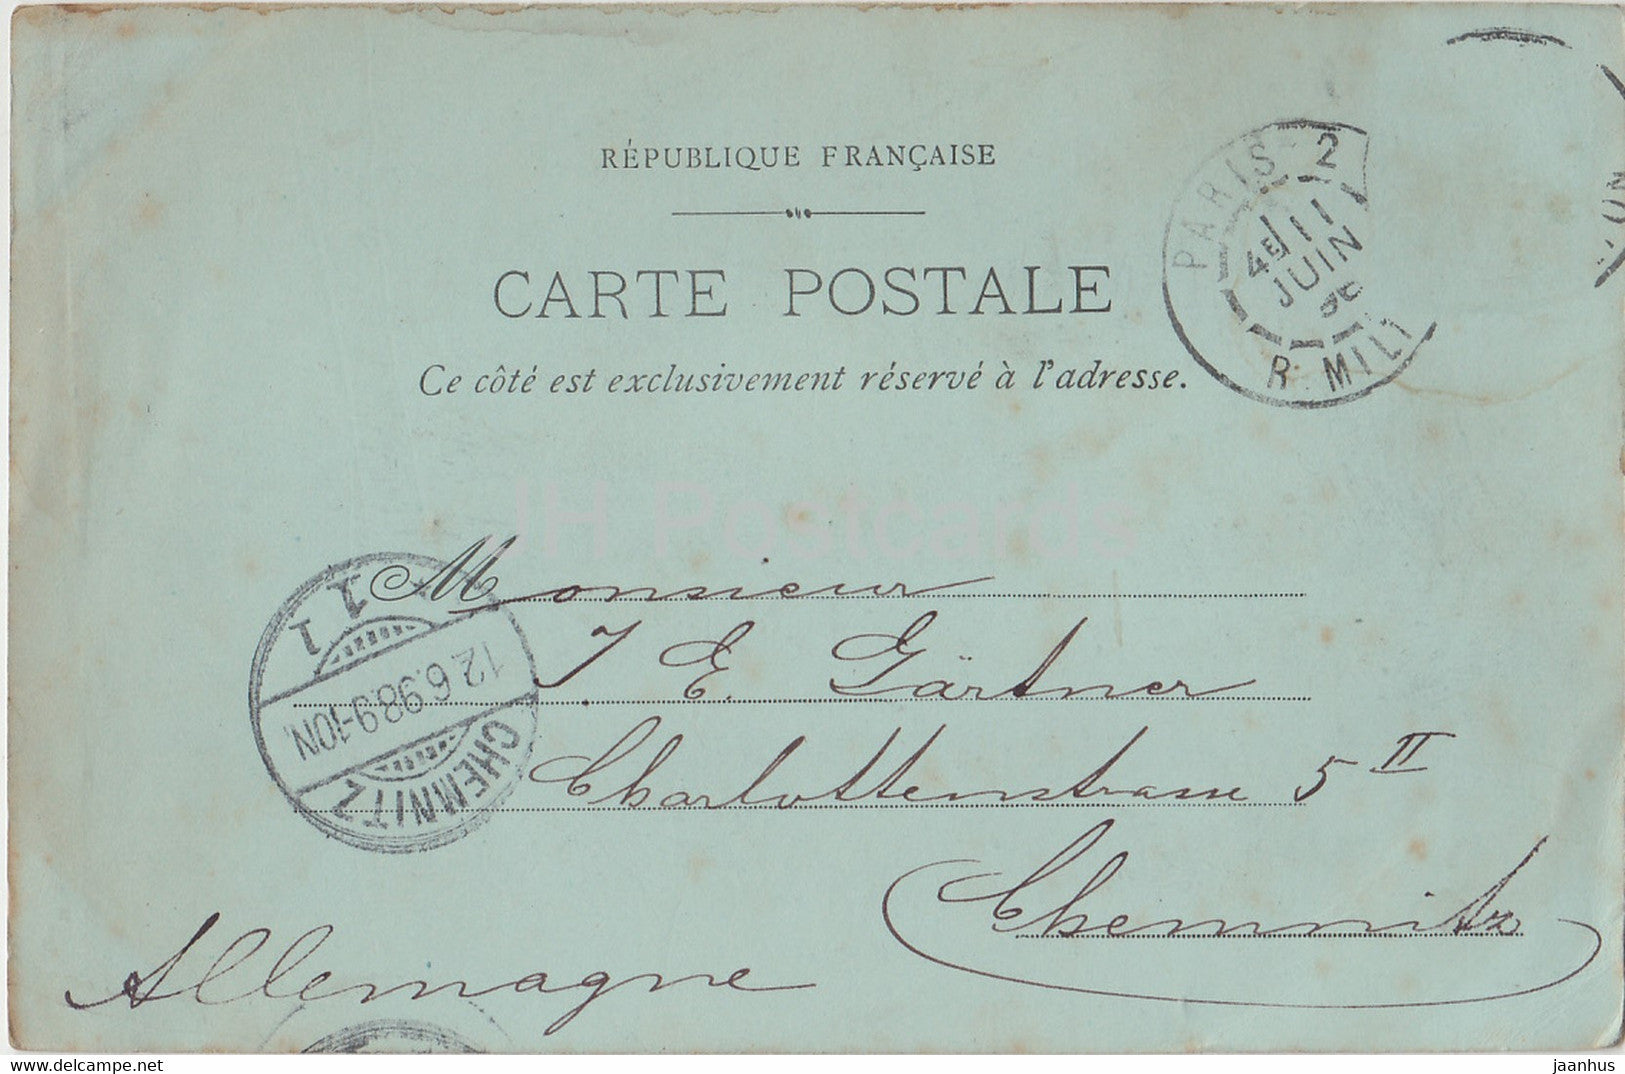 RÉPUBLIQUE FRANÇAISE
CARTE POSTALE
Ce côté est exclusivement réservé à l'adresse.
PARIS 2
4E 11
JUIN
R. MILT
JH Postcards
Monsieur
J E. Gärtner
Charlottenstrasse 5 II
Chemnitz
Allemagne
CHEMNITZ
12.6.98.9-10N.
1 1
www.delcampe.net
jaanhus